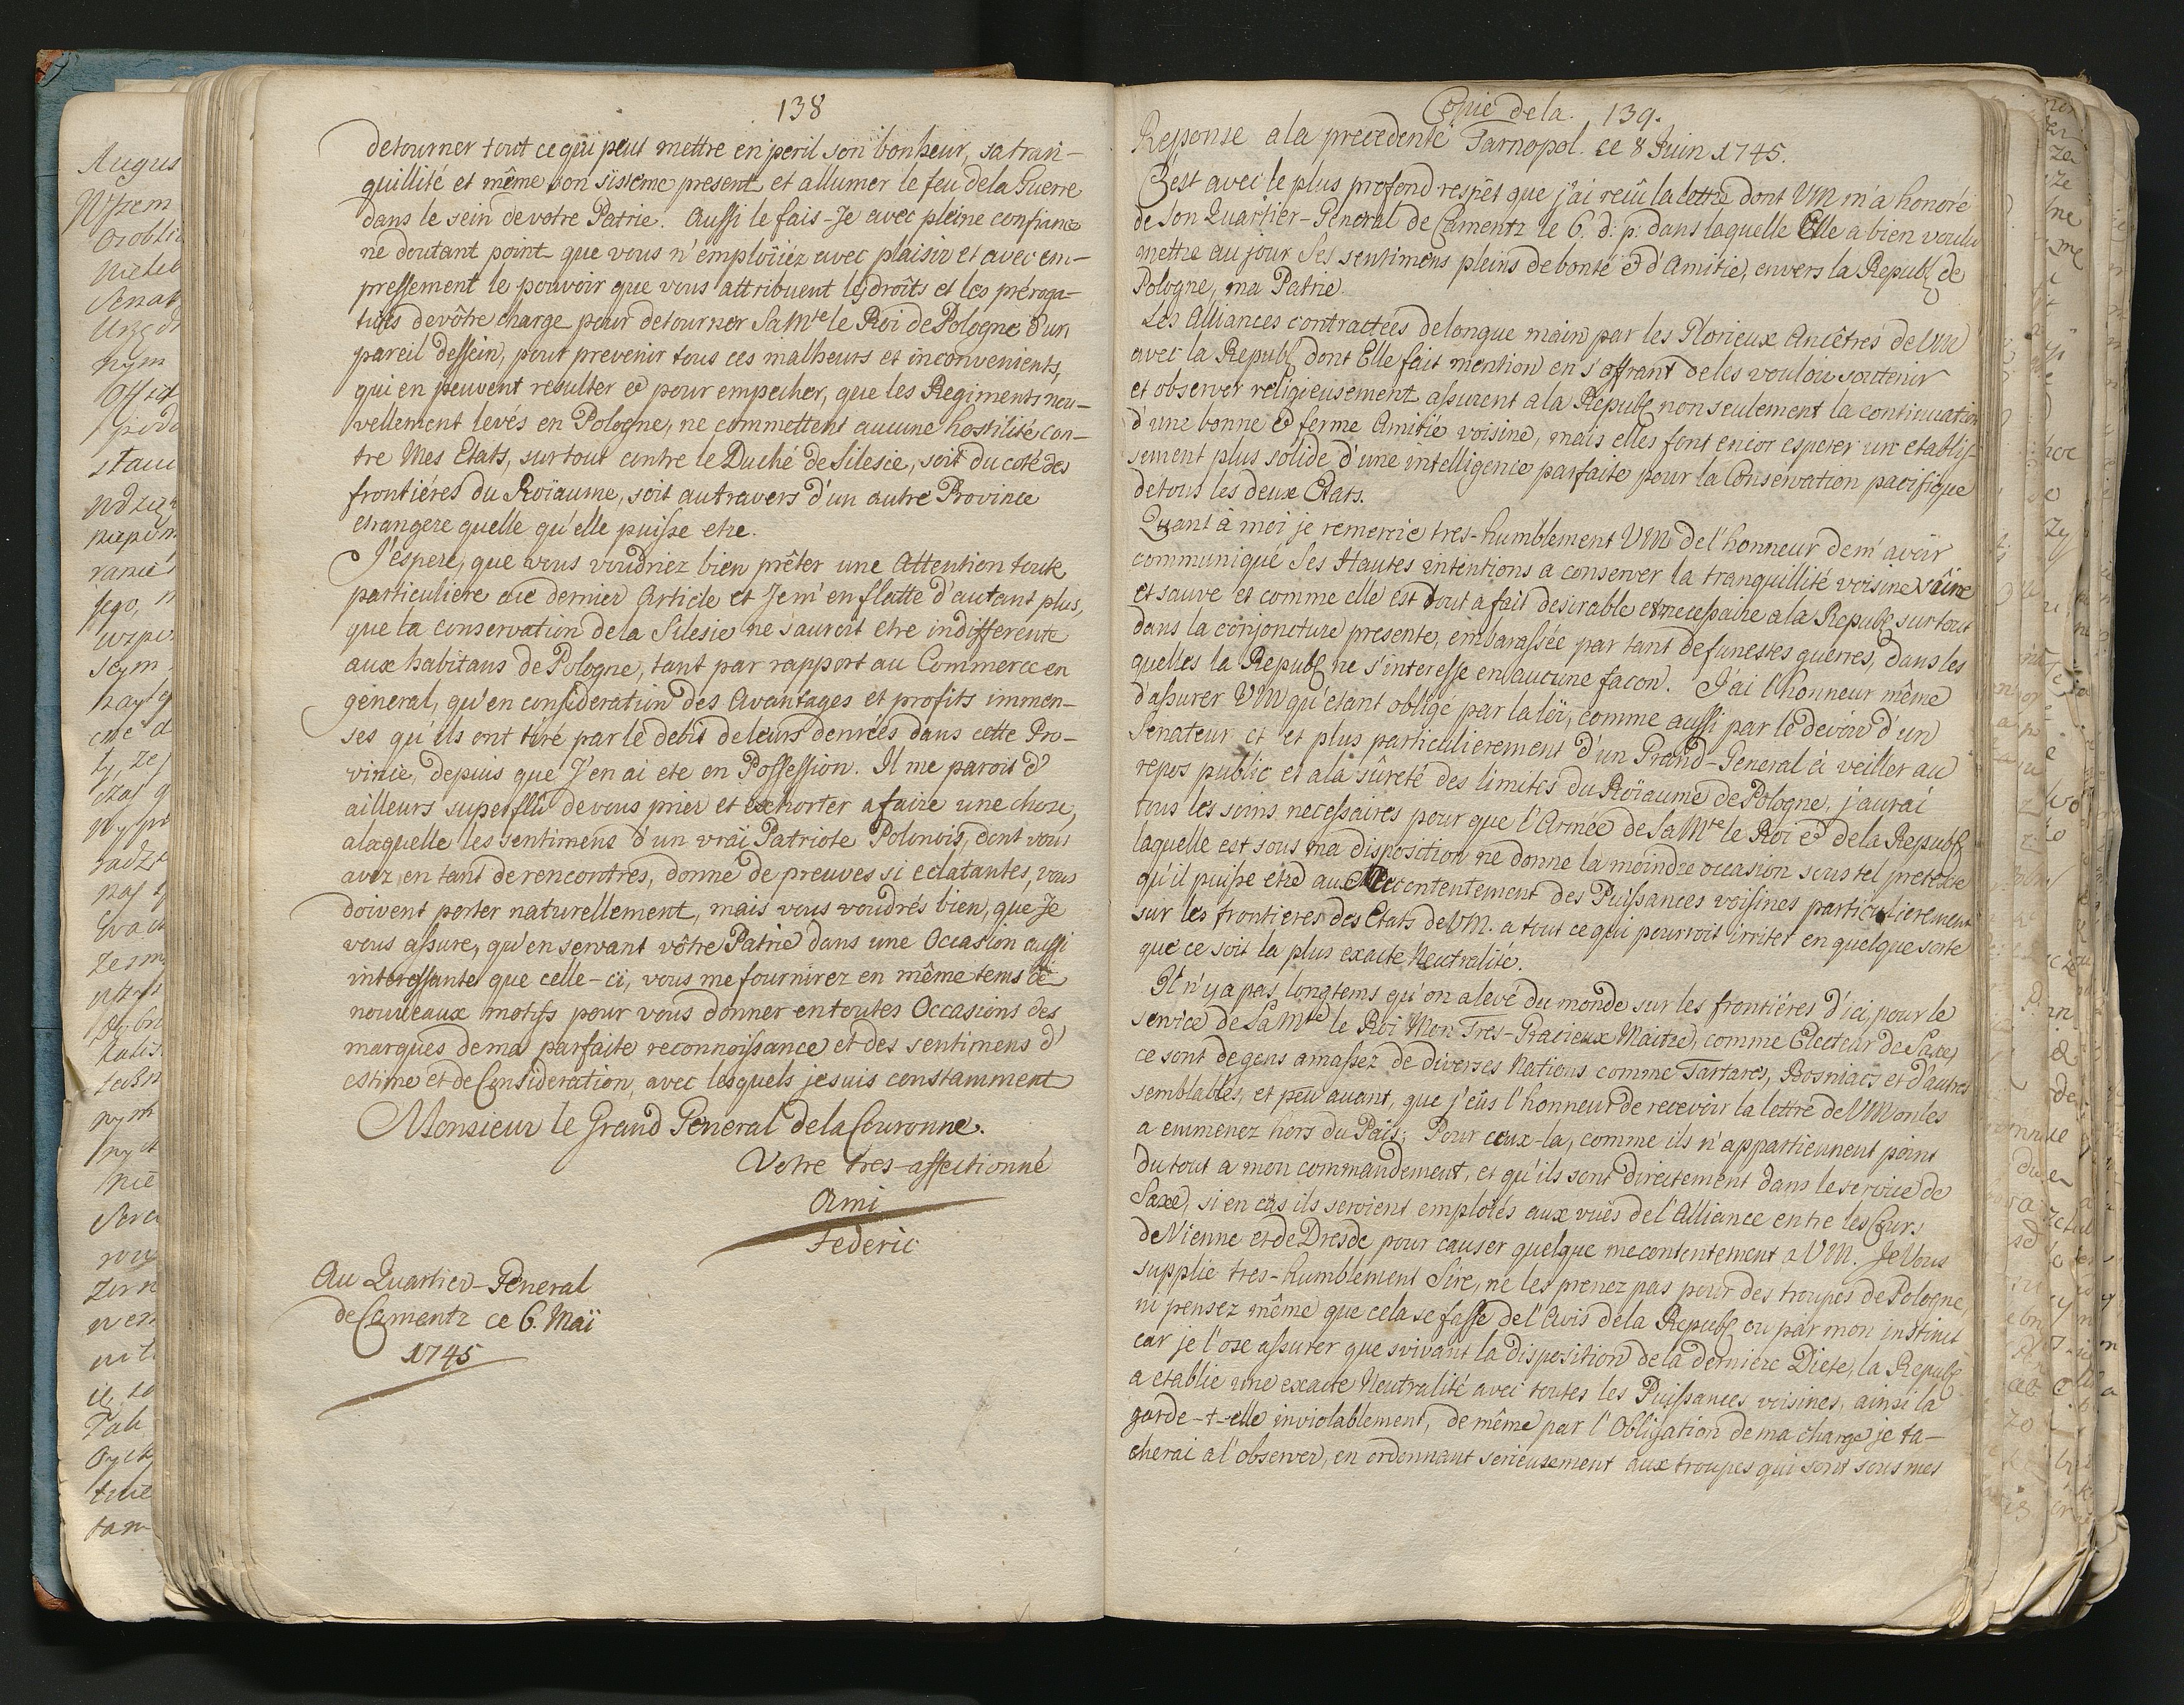 138
detourner tout ce qui peut mettre en peril son bonheur, sa tran-
quillité et même son sisteme present et allumer le feu de la Guerre
dans le sein de votre Patrie. Aussi le fais-Je avec pleine confiance
ne doutant point que vous n'emploïiéz avec plaisir et avec em-
pressement le pouvoir que vous attribuent les droits et les préroga-
tives de vôtre charge pour detourner Sa Mte le Roi de Pologne d'un
pareil dessein, pour prevenir tous ces malheurs et inconvenients,
qui en peuvent resulter et pour empecher, que les Regiments nou-
vellement levés en Pologne, ne commettent aucune hostilité con-
tre Mes Etats, surtout contre le Duché de Silesie, soit du coté des
frontiéres du Roïaume, soit au travers d'un autre Province
etrangere quelle qu'elle puisse etre.
J'espere, que vous voudriez bien prêter une Attention toute
particuliere a ce dernier Article et Je m'en flatte d'autant plus,
que la conservation de la Silesie ne sauroit etre indifferente
aux habitans de Pologne, tant par rapport au Commerce en
general, qu'en consideration des Avantages et profits immen-
ses qu'ils ont tiré par le debit de leurs denrées dans cette Pro-
vinie, depuis que J'en ai ete en Possession. Il me paroit d'
ailleurs superflû de vous prier et exhorter a faire une chose,
a laquelle les sentimens d'un vrai Patriote Polonois, dont vous
avez en tant de rencontres, donné de preuves si eclatantes, vous
doivent porter naturellement, mais vous voudrés bien, que Je
vous assure, qu'en servant vôtre Patrie dans une Occasion aussi
interessante que celle-ci, vous me fournirez en même tems de
nouveaux motifs pour vous donner en toutes Occasions des
marques de ma parfaite reconnoissance et des sentimens d'
estime et de Consideration, avec lesquels je suis constamment
Monsieur le Grand General de la Couronne.
Votre tres-affectionné
Ami
Federic
Au Quartier-General
de Camentz ce 6. Maï
1745
Copie de la. 139.
Reponse a la precedente Tarnopol. ce 8 Juin 1745.
C'est avec le plus profond respêt que j'ai reiû la lettre dont VM m'a honoré
de Son Quartier-General de Camentz le 6. d: p: dans laquelle Elle a bien voulu
mettre au jour Ses sentimens pleins de bonté et d'Amitié, envers la Republ de
Pologne, ma Patrie.
Les Alliances contractées de longue main par les Glorieux Ancêtres de VM
avec la Republ dont Elle fait mention en s'offrant de les vouloir soutenir
et observer religieusement assurent a la Republ non seulement la continuation
d'une bonne et ferme Amitié voisine, mais elles font encor esperer un etablis-
sement plus solide d'une intelligence parfaite pour la Conservation pacifique
de tous les deux Etats.
Quant à moi je remercie tres-humblement VM de l'honneur de m'avoir
communiqué Ses Hautes intentions a conserver la tranquillité voisine saine
et sauve et comme elle est tout a fait desirable et necessaire a la Republ surtout
dans la conjoncture presente, embarassée par tant de funestes guerres, dans les
quelles la Republ ne s'interesse en aucune facon. J'ai l'honneur même
d'assurer VM qu'étant obligé par la loi, comme aussi par le devoir d'un
Senateur et et plus particulierement d'un Grand-General à veiller au
repos public et a la sûreté des limites du Roïaume de Pologne, j'aurai
tous les soins necessaires pour que l'Armée de Sa Mte le Roi et de la Republ
laquelle est sous ma disposition ne donne la moindre occasion sous tel pretexte
qu'il puisse etre au Mecontentement des Puissances voisines particulierement
sur les frontieres des Etats de VM. a tout ce qui pourroit irriter en quelque sorte
que ce soit la plus exacte Neutralité.
Il n'y a pas longtems qu'on a levé du monde sur les frontiéres d'ici, pour le
service de Sa Mte le Roi Mon Tres-Gracieux Maitre, comme Electeur de Saxe,
ce sont de gens amassez de diverses Nations comme Tartares, Bosniacs et d'autres
semblables, et peu avant, que j'eûs l'honneur de recevoir la lettre de VM on les
a emmenez hors du Païs; Pour ceux-la, comme ils n'appartiennent point
du tout a mon commandement, et qu'ils sont directement dans le service de
Saxe, si en cas ils seroient emploïés aux vuës de l'Alliance entre les Cours
de Vienne et de Dresde pour causer quelque mecontentement a VM. Je Vous
supplie tres-humblement Sire, ne les prenez pas pour des troupes de Pologne,
ni pensez même que cela se fasse de l'Avis de la Republ ou par mon instinct
car je l'ose assurer que suivant la Disposition de la derniere Diete, la Republ
a etablie une exacte Neutralité avec toutes les Puissances voisines, ainsi la
garde-t-elle inviolablement, de même par l'Obligation de ma charge je ta-
cherai a l'observer, en ordonnant serieusement aux troupes qui sont sous mes